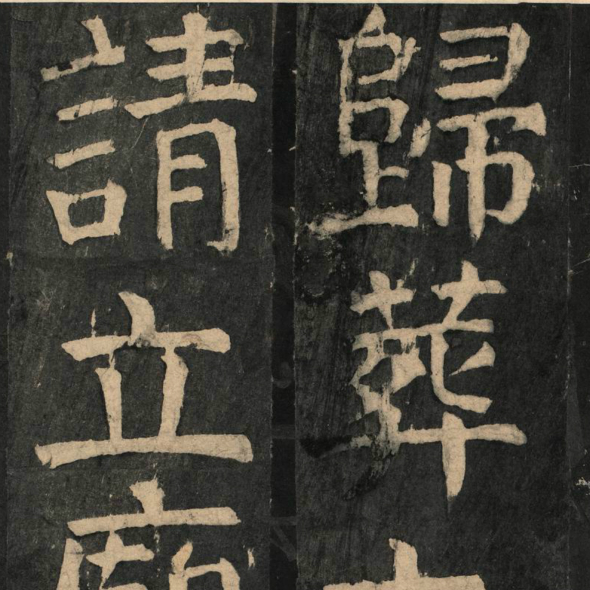 歸葬
請立廟